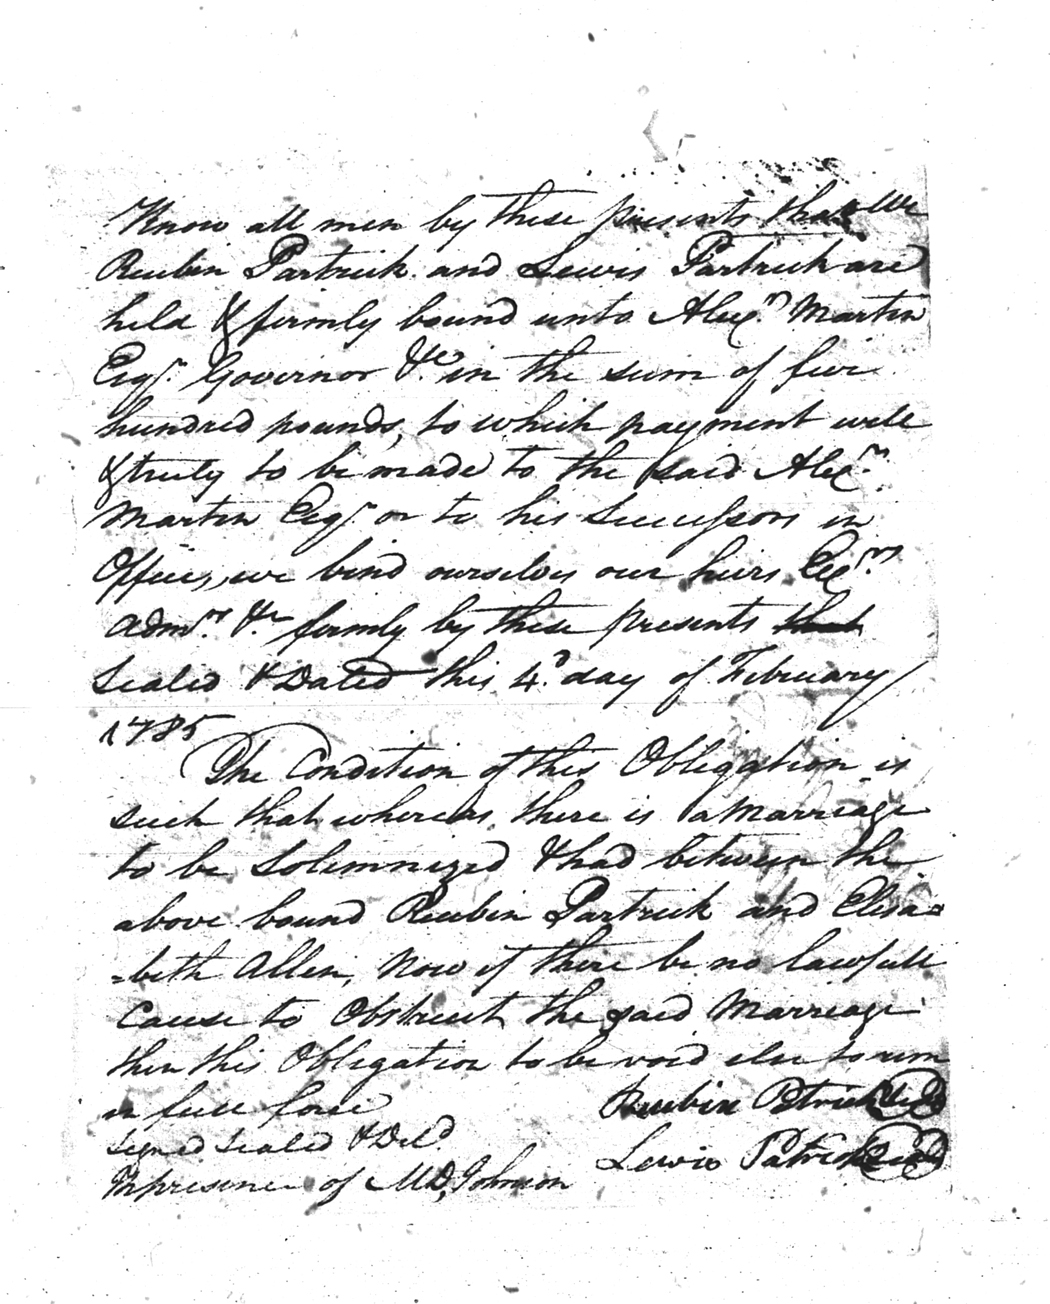 Know all men by these presents that we
Reubin Partrick and Lewis Partrick are
held & firmly bound unto Alex.r Martin
Esq.r Governor &c in the sum of five
hundred pounds, to which payment well
& truly to be made to the said Alex.r
Martin Esq.r or to his Successors in
Office, we bind ourselves our heirs Ex.rs
adm.rs &c firmly by these presents that
Sealed & Dated this 4.th day of February
1785
The Condition of this Obligation is
such that whereas there is a Marriage
to be Solemnized & had between the
above bound Reubin Partrick and Elisa=
=beth Allen, Now if there be no lawfull
Cause to Obstruct the said Marriage
then this Obligation to be void else to
in full force
Reubin Ptrick
Signed Sealed & Del.d
Lewis Patrick
In presence of MD, Johnson